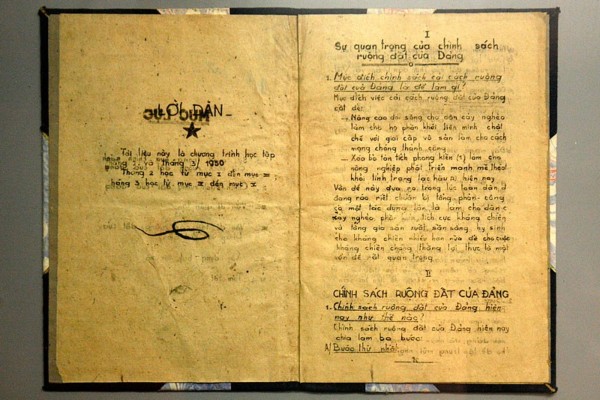 Tài liệu này là chương trình học tập
tháng 2 và tháng 3/1950
Tháng 2 học từ mục I đến mục III
tháng 3 học từ mục đến mục X
I
Sự quan trọng của chính sách
ruộng đất của Đảng
1. Mục đích chính sách cải cách ruộng
đất của Đảng là để làm gì?
Mục đích việc cải cách ruộng đất của Đảng
cốt để:
- Nâng cao đời sống cho dân cày nghèo
làm cho họ phấn khởi liên minh chặt
chẽ với giai cấp vô sản làm cho cách
mạng chóng thành công.
- Xóa bỏ tàn tích phong kiến (1) làm cho
nông nghiệp phát triển mạnh mẽ theo
khỏi tình trạng lạc hậu hiện nay
Vấn đề này đưa ra trong lúc toàn dân đ
đang ráo riết chuẩn bị tổng phản công
có một tác dụng lớn là làm cho dân c
cày nghèo, phấn tích cực kháng chiến
và tăng gia sản xuất, sẵn sàng hy sinh
cho kháng chiến nhiều hơn nữa để cho cuộc
kháng chiến chóng thắng lợi, thực là một
vấn đề rất quan trọng
II
CHÍNH SÁCH RUỘNG ĐẤT CỦA ĐẢNG
1. Chính sách ruộng đất của Đảng hiện
nay như thế nào?
Chính sách ruộng đất của Đảng hiện nay
chia làm ba bước:
A) Bước thứ nhất